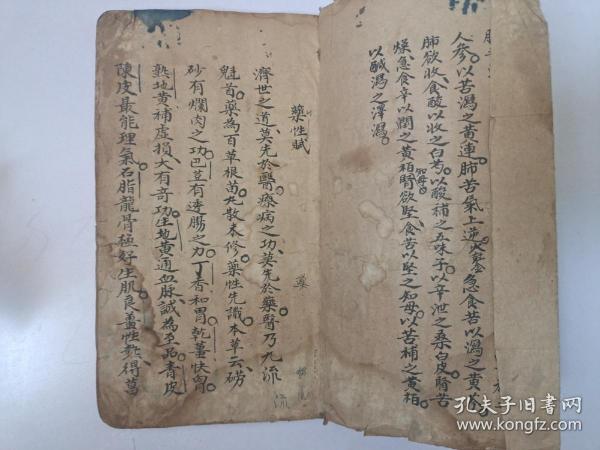 人參。以苦瀉之黃連。肺苦氣上逆。急食苦以瀉之黃芩。
肺欲收食酸以收之白芍。以酸補之五味子。以辛泄之桑白皮。腎苦
燥急食辛以潤之黃柏知母。腎欲堅。食苦以堅之知母。以苦補之黃柏。
以鹹瀉之澤瀉。
藥性賦
濟世之道莫先於醫。療病之功。莫先於藥。醫乃九流
魁首。藥為百草根苗。丸散未修。藥性先識。本草云。硇
砂有爛肉之功。巴豆有透腸之力。丁香和胃。乾薑快胸
熟地黃補虛損。大有奇功。生地黃通血脉。誠為至品。青皮
陳皮最能理氣。石脂龍骨極好生肌。良薑性熱。得萬
藥
流
孔夫子旧书网
www.kongfz.com